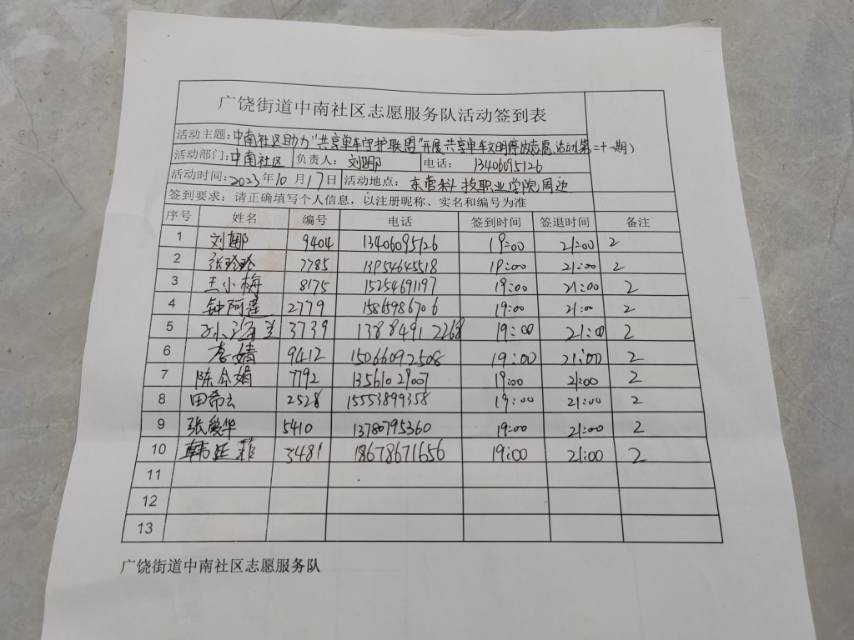 广饶街道中南社区志愿服务队活动签到表
活动主题：中南社区助力“共享单车守护联盟”开展共享单车文明停放志愿活动(第二十一期)
活动部门：中南社区 负责人：刘娜 电话：13406095126
活动时间：2023年10月17日 活动地点：东营科技职业学院周边
签到要求：请正确填写个人信息，以注册昵称、实名和编号为准
序号 姓名 编号 电话 签到时间 签退时间 备注
1 刘娜 9404 13406095126 19:00 21:00 2
2 张玲玲 7785 13954645518 19:00 21:00 2
3 王小梅 8175 15254691197 19:00 21:00 2
4 钟阿莲 2779 15865986706 19:00 21:00 2
5 3739 13884912268 19:00 21:00 2
6 李婧 9412 15066092508 19:00 21:00 2
7 陈 娟 7792 13561029007 19:00 21:00 2
8 田希云 2528 15553899358 19:00 21:00 2
9 张爱华 5410 13780795360 19:00 21:00 2
10 韩延菲 3481 18678671656 19:00 21:00 2
11
12
13
广饶街道中南社区志愿服务队